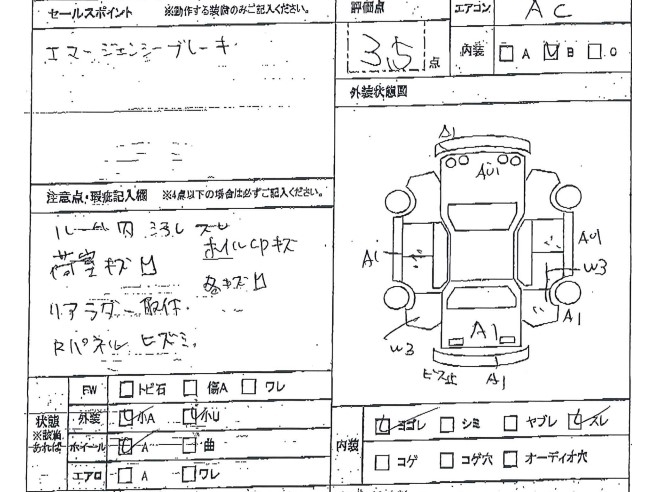 セールスポイント ※動作する装備のみご記入ください。
エマージェンシーブレーキ
評価点
3.5 点
エアコン AC
内装 A B C
外装状態図
A1
AU1
A1
AU1
W3
W3
A1
A1
ビス止 A1
注意点・瑕疵記入欄 ※4点以下の場合は必ずご記入ください。
ルーム内 ヨゴレ スレ
ホイルCPキズ
荷室キズ凹
各キズ凹
リアラダー取付.
Rパネル ヒズミ.
状態 ※装備あれば
FW トビ石 傷A ワレ
外装 小A 小U
ホイール A 曲
エアロ A ワレ
内装
ヨゴレ シミ ヤブレ スレ
コゲ コゲ穴 オーディオ穴